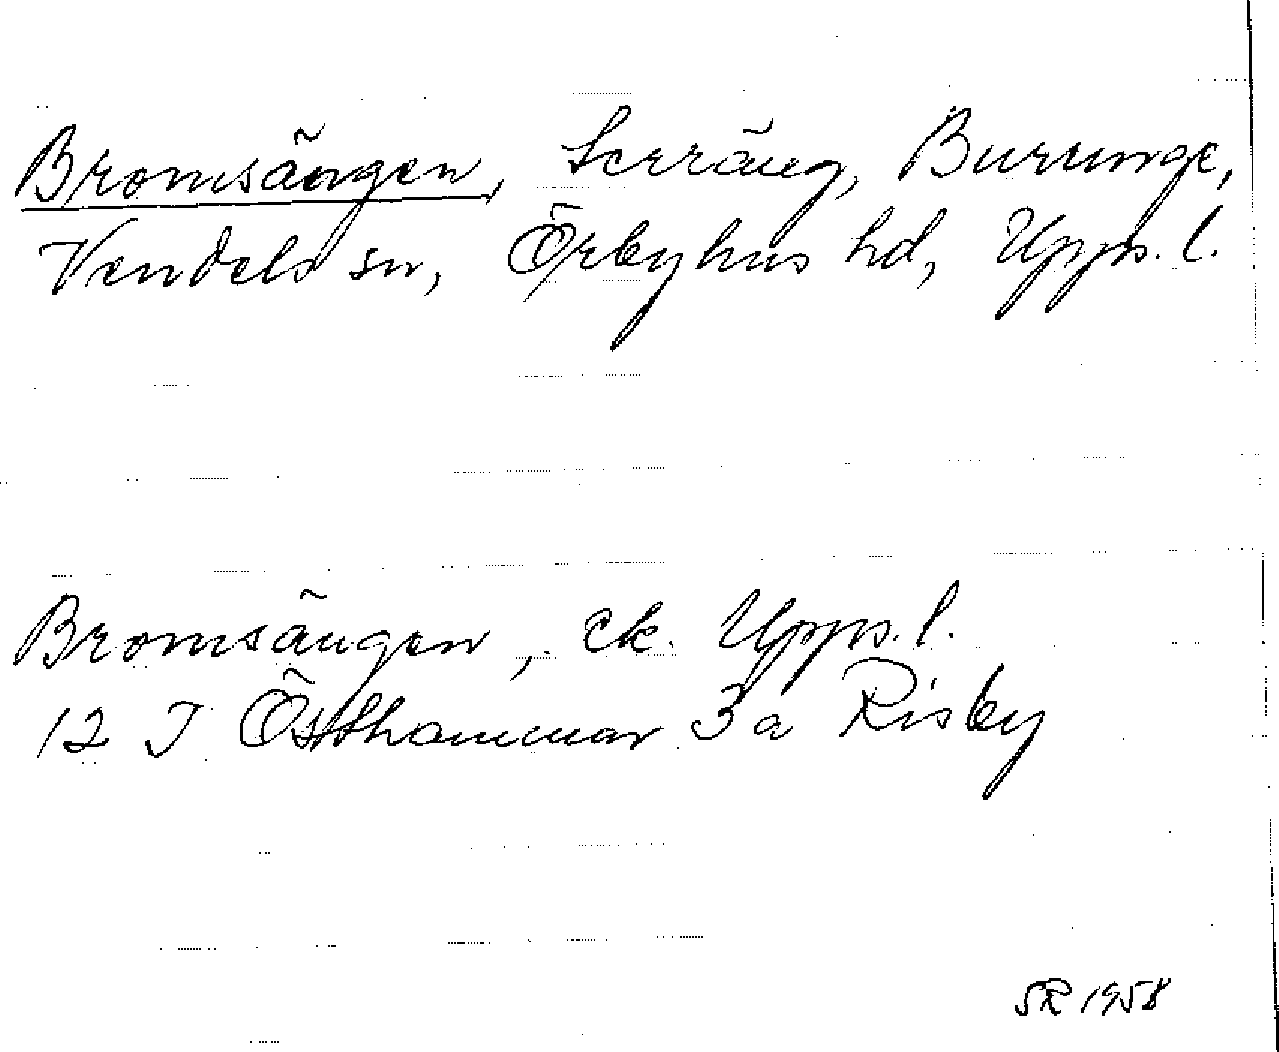 Bromsängen, terräng, Burunge,
Vendels sn, Örbyhus hd, Upps. l.
Bromsängen, ek. Upps. l.
12 I Östhammar 3a Risby
SR 1958